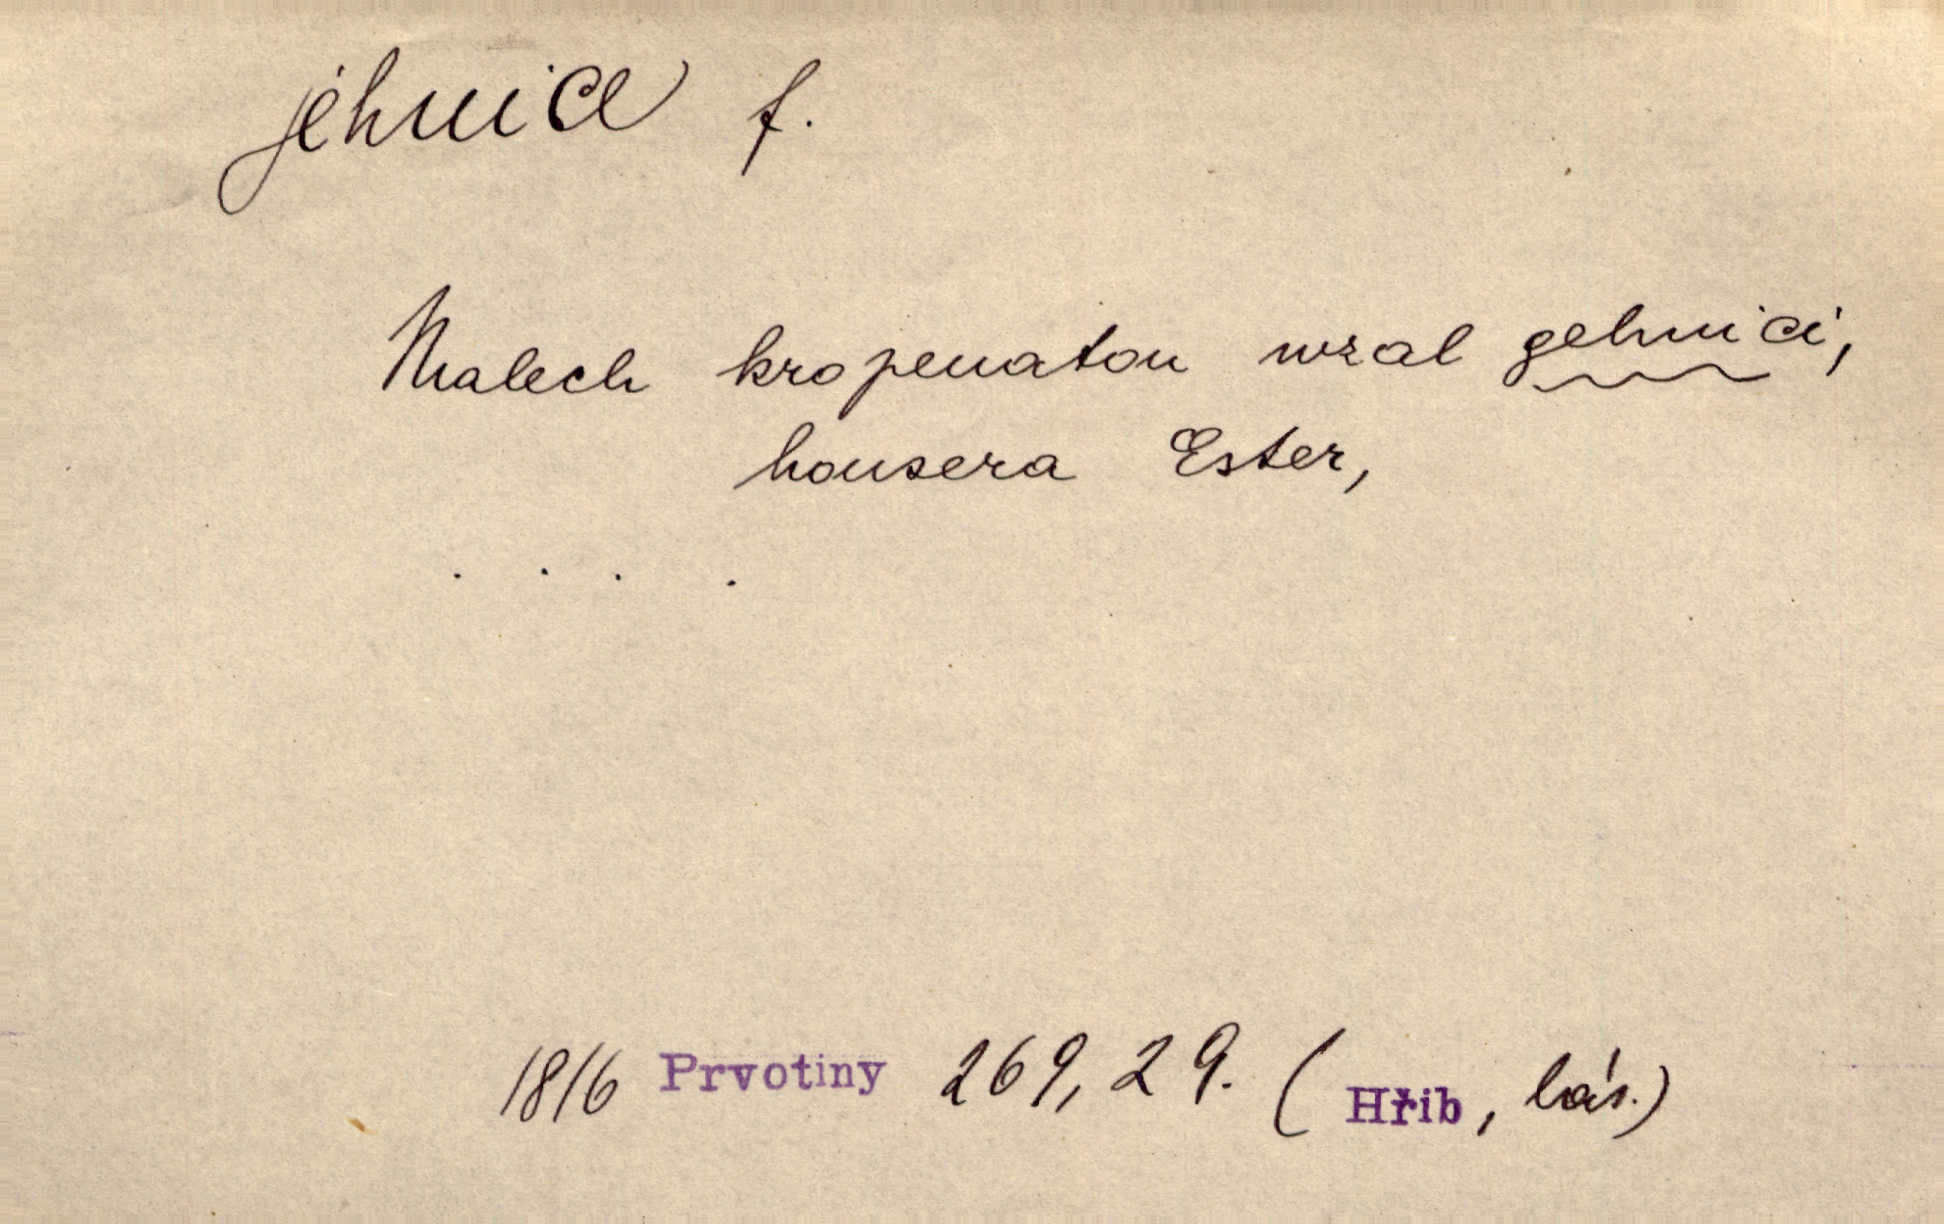 jehnice f.
Malech kropenatou wzal gehnici,
housera Ester,
. . . .
1816 Prvotiny 269, 29. (Hřib, bás.)